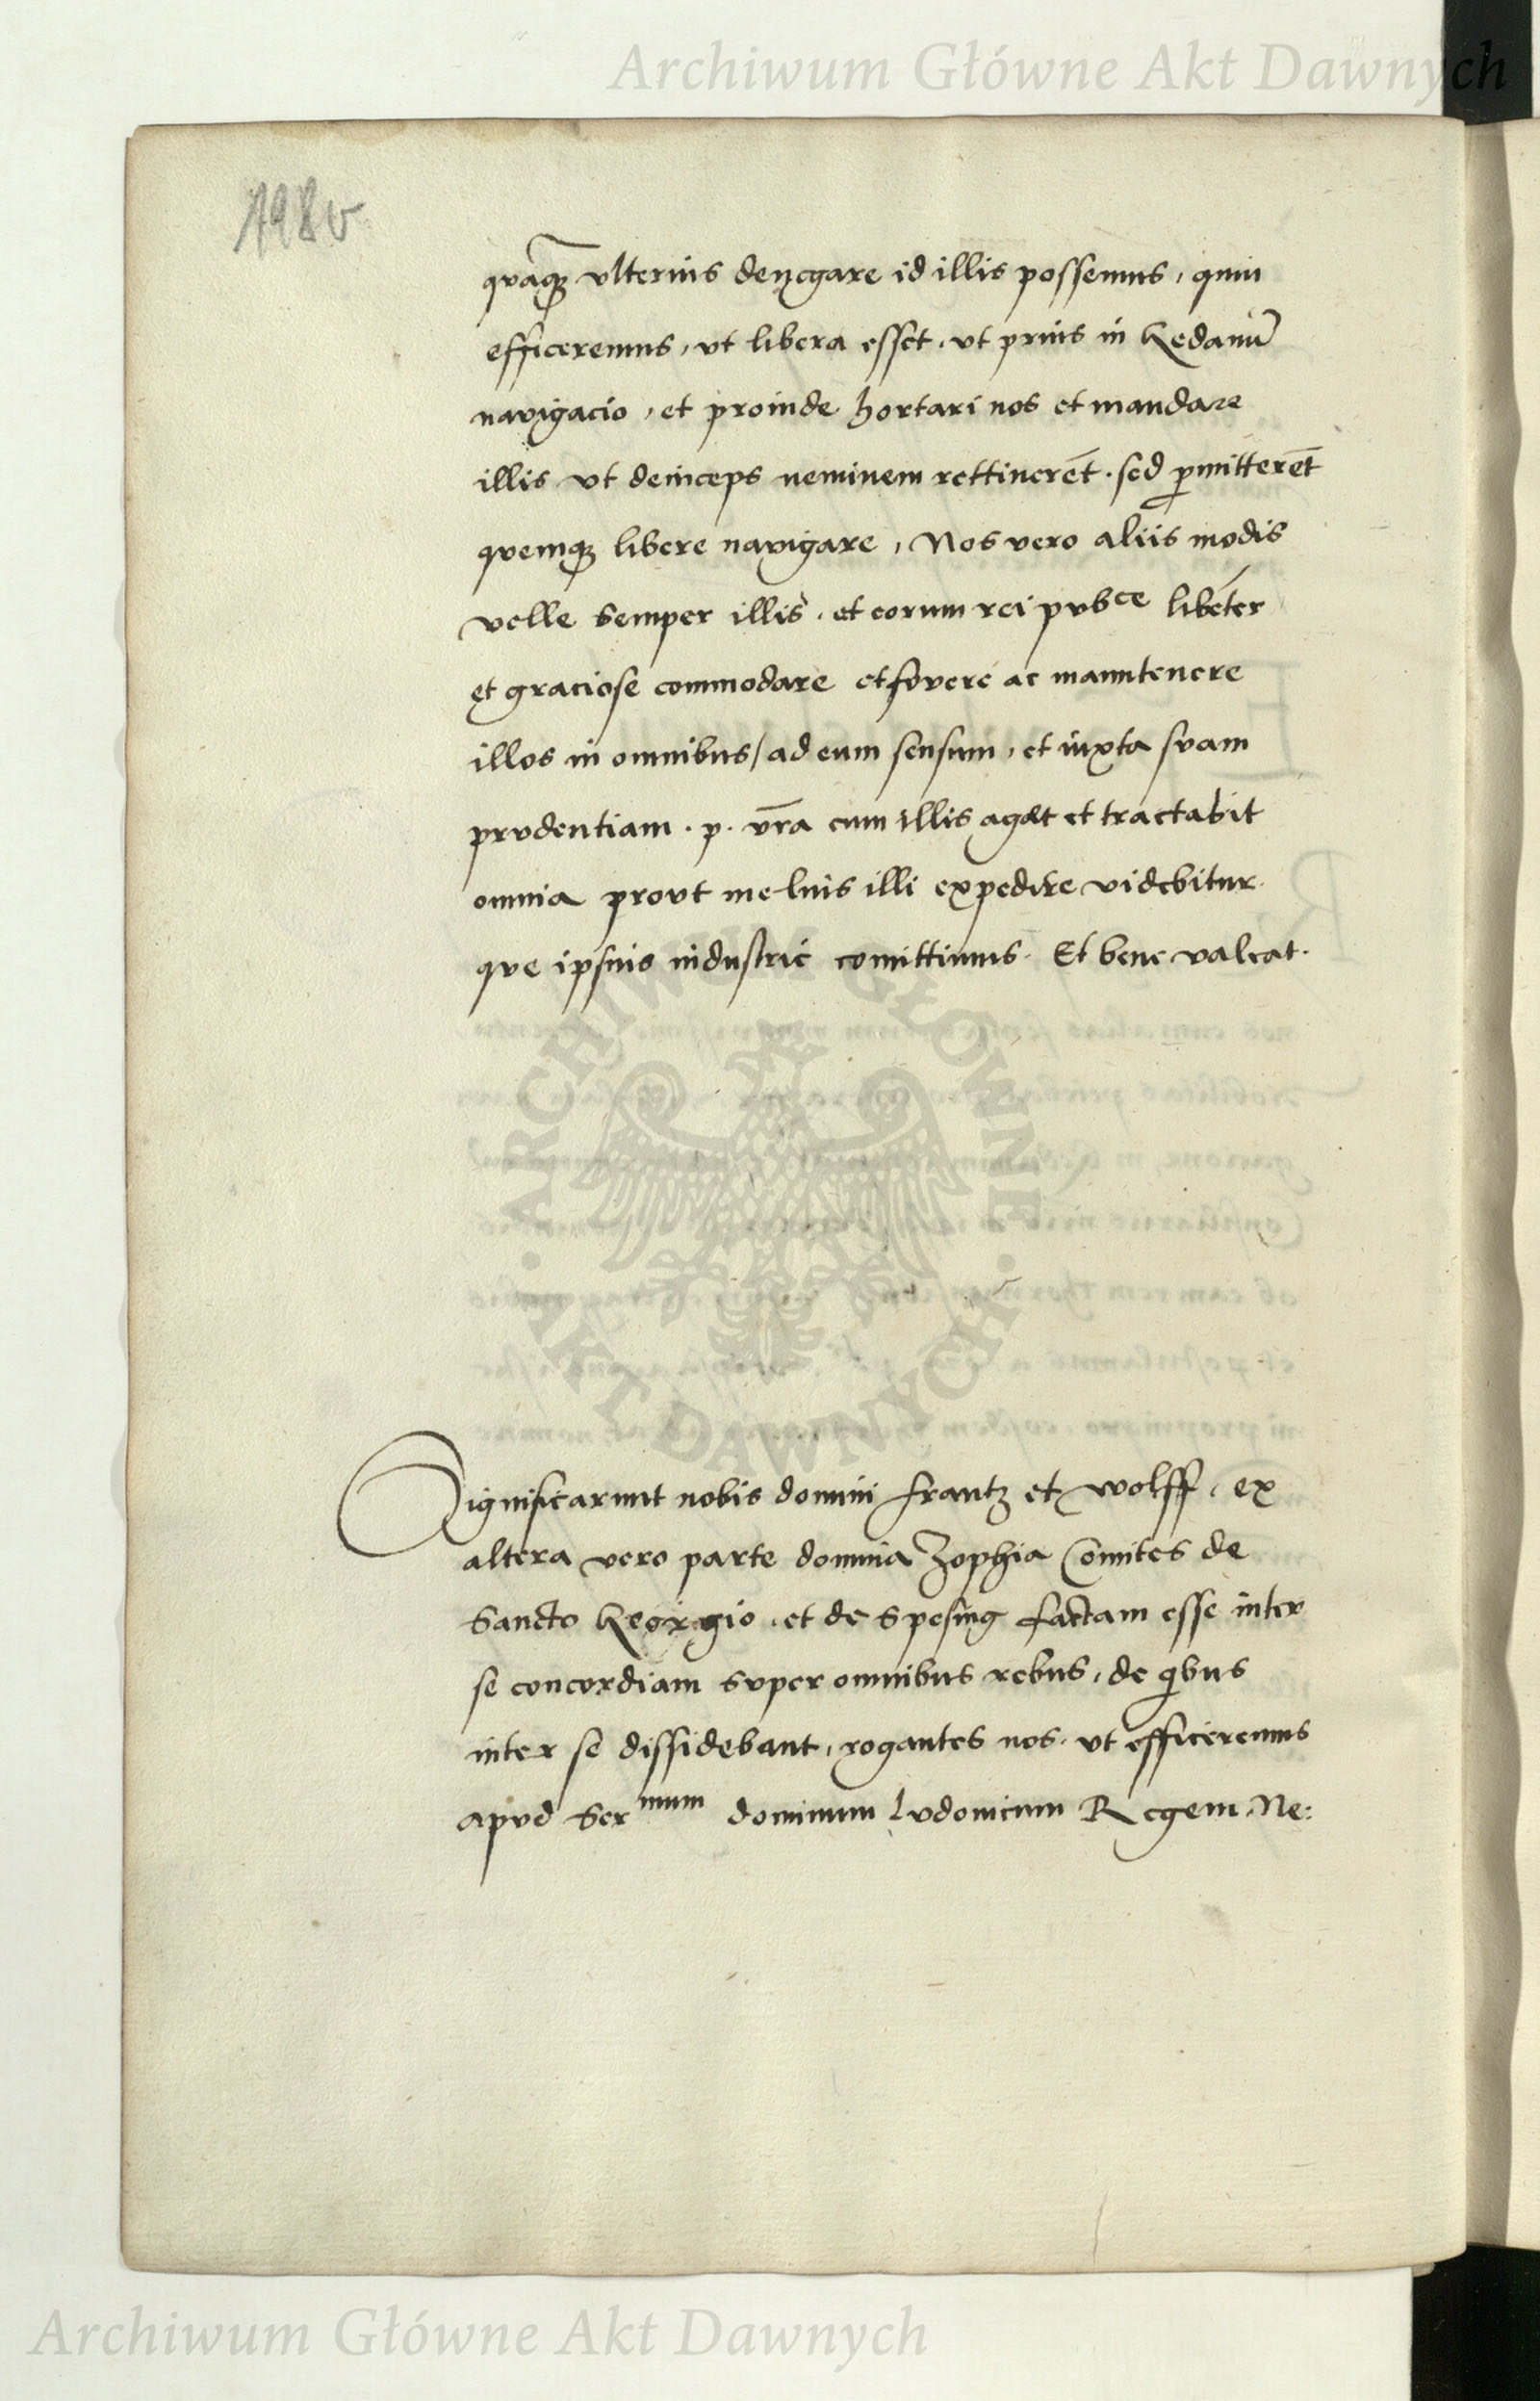 Archiwum Główne Akt Dawnych
198v
qua̅q̲ꝫ vlterius denegare id illis possemus, quin
efficeremus, vt libera esset, vt prius in Gedanu̅
navigacio, et proinde hortari nos et mandare
illis vt deinceps neminem rettinere̅t. sed p̲mittere̅t
quemqꝫ libere navigare, Nos vero aliis modis
velle semper illis, et eorum rei pubce libe̅ter
et graciose commodare et fovere ac manutenere
illos in omnibus / ad eum sensum, et iuxta suam
prudentiam. p. vr̅a cum illis agat et tractabit
omnia prout melius illi expedire videbitur.
que ipsius industrie comittimus. Et bene valeat.
ARCHIWUM GŁÓWNE · AKT DAWNYCH ·
Significarunt nobis domini Frantz et Wolff, ex
altera vero parte domina Zophia Comites de
Sancto Georgio, et de Sposing factam esse inter
se concordiam super omnibus rebus, de qibus
inter se dissidebant, rogantes nos, vt efficeremus
apud Sermum dominum Ludovicum Regem. Ne:
Archiwum Główne Akt Dawnych